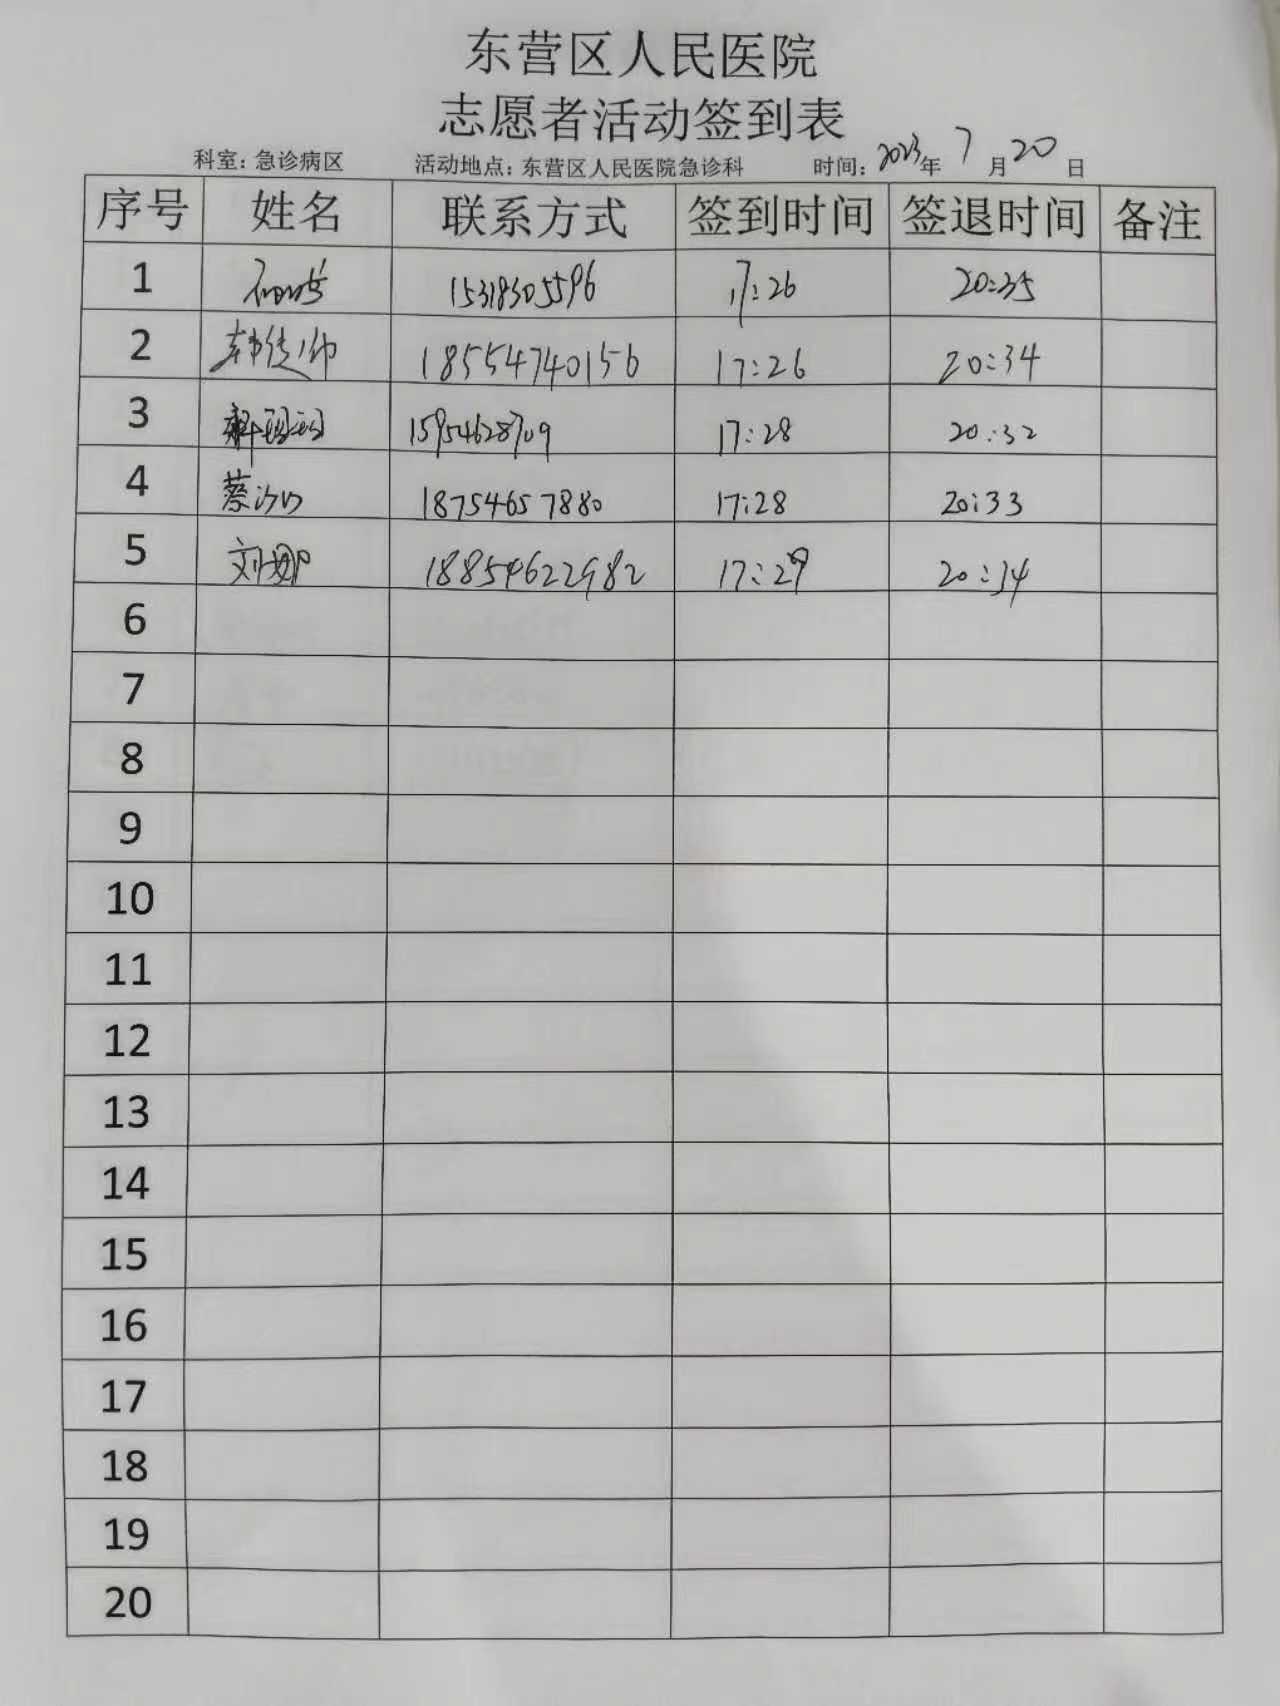 东营区人民医院
志愿者活动签到表
科室：急诊病区 活动地点：东营区人民医院急诊科 时间：2023年 7 月 20 日
序号 姓名 联系方式 签到时间 签退时间 备注
1 15318305596 17:26 20:35
2 18554740156 17:26 20:34
3 15954628709 17:28 20:32
4 蔡 18754657880 17:28 20:33
5 刘娜 18854622982 17:29 20:34
6
7
8
9
10
11
12
13
14
15
16
17
18
19
20